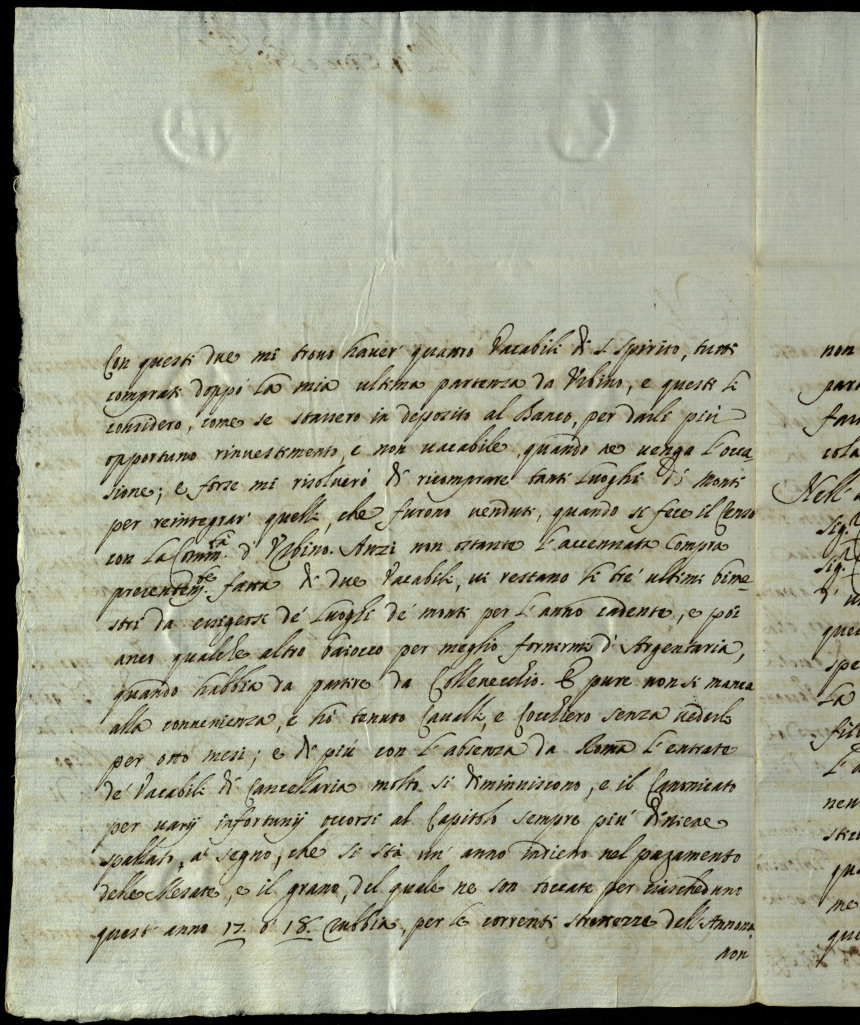 Con questi due mi trovo haver' quattro Vacabili di S. Spirito, tutti
comprati doppò la mia ultima partenza da Urbino, e questi li
considero, come se stassero in deposito al Banco, per darli più
opportuno rinvestimento, e non vacabile, quando ne venga l'occa
sione; e forse mi risolverò di ricomprare tanti luoghi di Monti
per reintegrar' quelli, che furono venduti, quando si fece il Censo
con la Comm.tà d'Urbino. Anzi non ostante l'accennata Compra
presentem.te fatta di due Vacabili, vi restano li trè ultimi bime-
stri da esigersi de' luoghi de' monti per l'anno cadente, e poi
anco qualche altro baiocco per meglio fornirmi d'Argentaria,
quando habbia da partire da Collevecchio. E pure non si manca
alla convenienza, e hò tenuto Cavalli, e Cocchiero senza vederli
per otto mesi; e di più con l'absenza da Roma l'entrate
de' Vacabili di Cancellaria molto si diminuiscono, e il Canonicato
per varij infortunij occorsi al Capitolo sempre più diviene
spallato, a' segno, che si stà un' anno indietro nel pagamento
delle Mesate, e il grano, del quale ne son toccate per ciascheduno
quest'anno 17. ò 18. rubbia, per le correnti strettezze dell'Annona
non
non
Nell'
Sig.
Sig.
d'
La
me